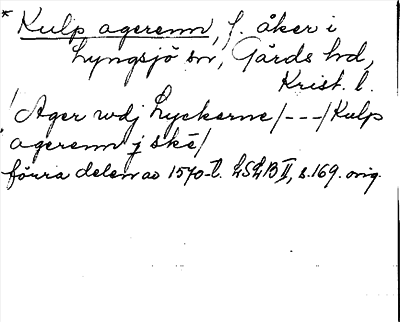 * Kulp agerenn, f. åker i
Lyngsjö sn, Gärds hd,
Krist. l.
/Ager wdj Lyckerne/---/Kulp
agerenn j skē/
förra delen av 1570-t. LSLB II, s. 169. orig.